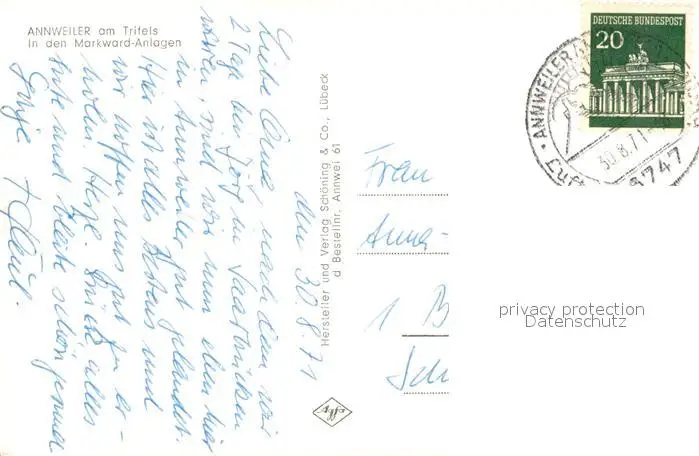 ANNWEILER am Trifels
In den Markward-Anlagen
den 30.8.71
Liebe Oma, nach dem wir
2 Tage bei Jörg in Saarbrücken
waren, sind wir nun eben hier
in Annweiler gut gelandet.
Hier ist alles Bestens und
wir hoffen uns gut zu er-
holen. Herzl. Grüße, alles
Gute und bleibe schön gesund
Hersteller und Verlag Schöning & Co., Lübeck
d Bestellnr. Annwei 61
DEUTSCHE BUNDESPOST
20
ANNWEILER A
30.8.71
Luft
6747
Frau
Anna-
1 B
Sch
privacy protection
Datenschutz